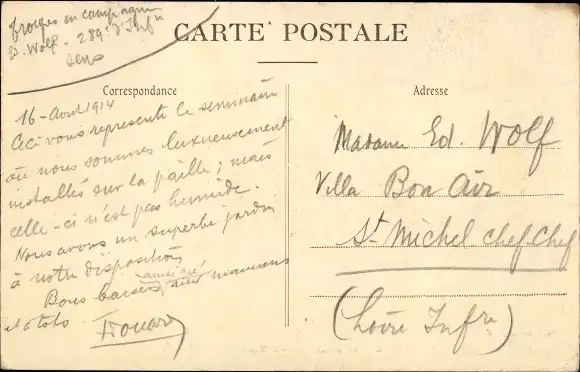 Troupes en campagne
Ed. Wolf - 289e d'Infie
Sens
CARTE POSTALE
Correspondance
Adresse
16 - Aout 1914
Ceci vous represente le seminaire
où nous sommes luxueusement
installés sur la paille ; mais
celle-ci n'est pas humide.
Nous avons un superbe jardin
à notre disposition
Bons baisers ainsi qu'aux mamans
et à toto.
Edouard
Madame Ed. Wolf
Villa Bon Air
St Michel Chef Chef
(Loire Infre)